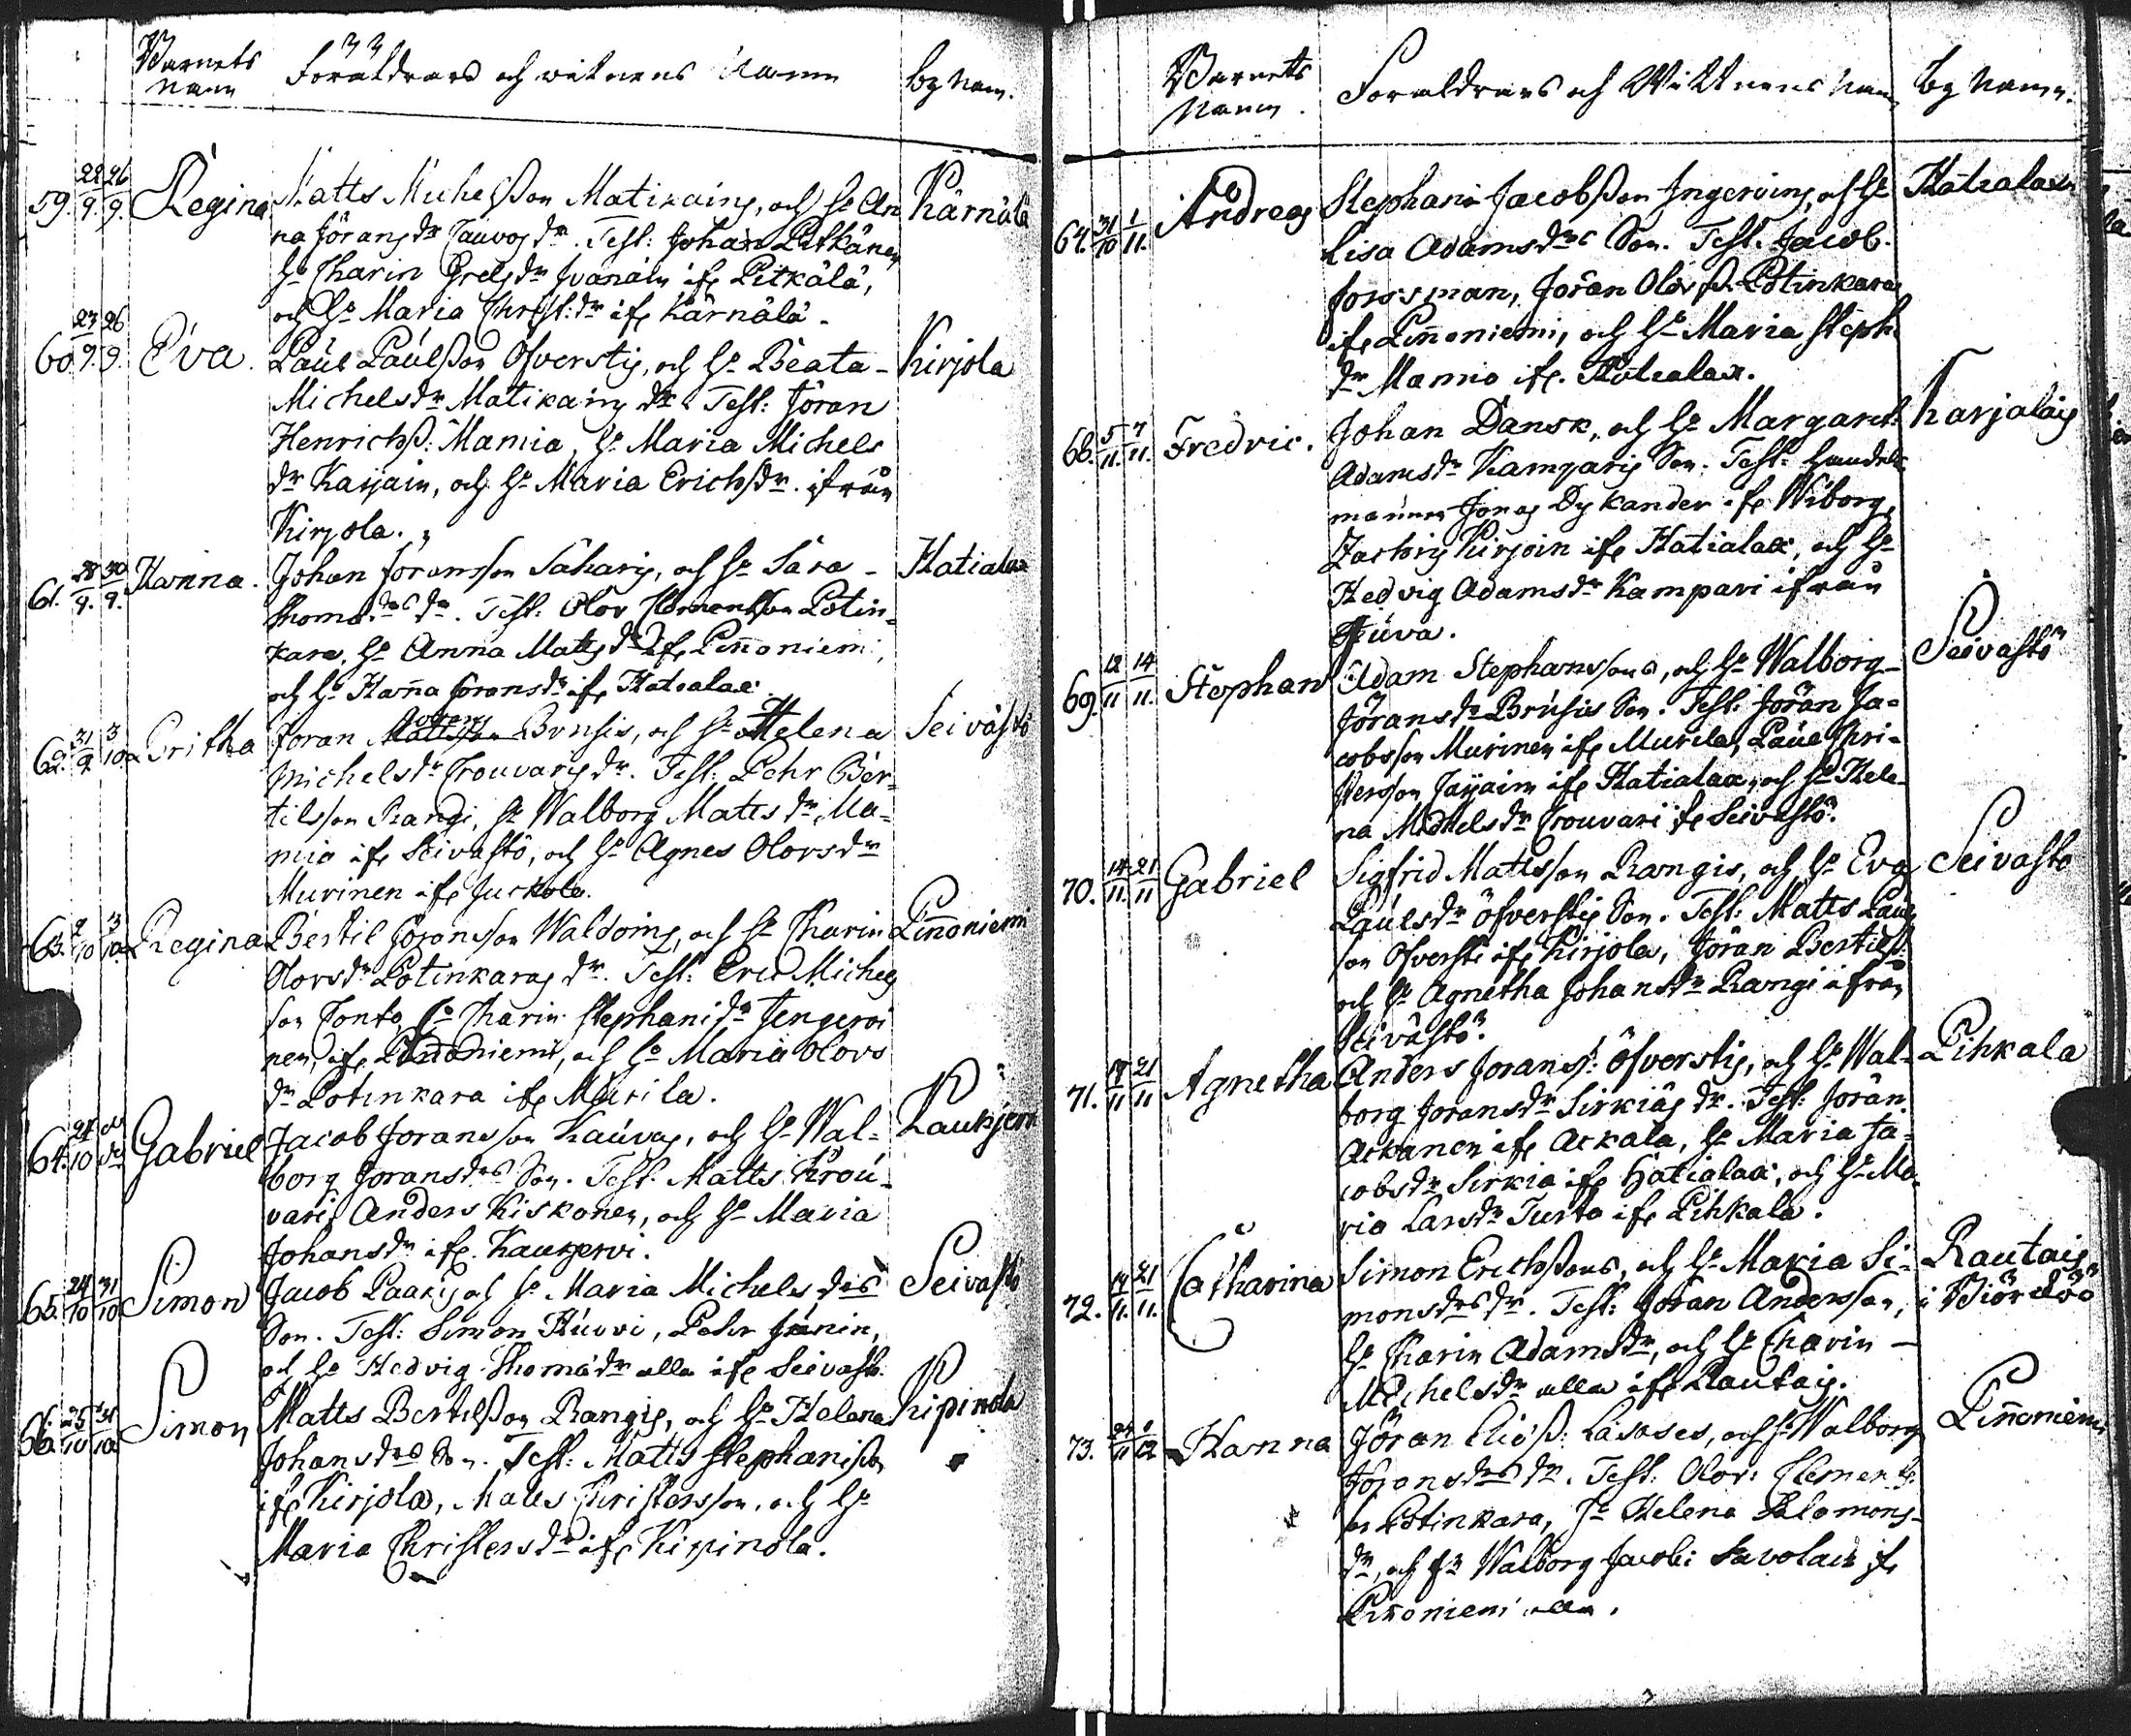 Barnets
namn
Föräldrars och witnens namn
by namn.
59. 22/9. 26/9. Regina Matts Michelsson Matikains, och H. An Kärnälä
na Jörans dr Tauvos dr. Test: Johan Pitkänen
H. Charin Grels dr Ivanain ifr Pitkälä,
och H. Maria Christ: dr ifr Kärnälä.
60. 23/9. 26/9. Eva. Paul Paulsson Öfverstis, och H. Beata Kirjola
Michels dr Matikains dr. Test: Jöran
Henrichss: Mamia, H. Maria Michels
dr Karjain, och H. Maria Erichs dr. ifrån
Kirjola.
61. 28/9. 30/9. Hanna. Johan Joransson Saharis, och H. Sara Hatialax
Thomæ drs dr. Test: Olov Clementsson Potin=
kara, H. Anna Matts dr ifr Pinnoniemi,
och H. Hanna Jorans dr ifr Hatialax.
62. 31/9. 3/10. Britha Joran Brusis, och H. Helena Seivästö
Michels dr Crouvaris dr. Test: Pehr Ber=
tilsson Rangi, H. Walborg Matts dr Ma=
mia ifr Seivastö, och H. Agnes Olovs dr
Murinen ifr Juckola.
63. 2/10 3/10. Regina Bertil Joransson Waldoins, och H. Charin Pinnoniemi
Olovs dr Potinkaras dr. Test: Eric Michels
son Tonto, H. Charin Stephani dr Jengeroi
nen, ifr Pinnoniemi, och H. Maria Olovs
dr Potinkara ifr Murila.
64. 21/10 Gabriel Jacob Joransson Kauvas, och H. Wal= Kaukjerv
borg Jorans drs Son. Test. Matts Krou=
vari, Anders Kiskonen, och H. Maria
Johans dr ifr. Kaukjervi.
65. 24/10 31/10 Simon Jacob Paaris och H. Maria Michels drs Seivastö
Son. Test: Simon Huovi, Pehr Janin,
och H. Hedvig Thomæ dr alla ifr Seivastö.
66. 25/10 31/10 Simon Matts Bertelsson Rangis, och H. Helena Kipinola
Johans drs Son. Test: Matts Stephanisson
ifr Kirjola, Matts Christersson, och H.
Maria Christers dr ifr Kipinola.
Barnets
Namn.
Foraldrars och Wittnens namn
by namn.
31/10 1/11. Andreas Stephan Jacobsson Ingeroins, och H. Hatialax
Lisa Adams drs Son. Test. Jacob
Forssman, Jöran Olovss. Potinkara
ifr Pinnoniemi, och H. Maria Steph.
dr Mamia ifr. Hatialax.
68. 5/11. 7/11. Fredric. Johan Dansk, och H. Margaret: Karjalais
Adams dr Kamparis Son. Test. handels
mannen Jonas Dykander ifr Wiborg,
Zachris Kirjoin ifr Hatialax, och H.
Hedvig Adams dr Kampari ifrån
69. 12/11 14/11. Stephan Adam Stephanssons, och H. Walborg Seivastö
Jörans dr Brusis Son. Test: Jöran Ja=
cobsson Murinen ifr Murila, Paul Chri=
stersson Jaijain ifr Hatialax, och H. Hele=
na Michels dr Crouvari ifr Seivastö.
70. 14/11. 21/11 Gabriel Sigfrid Mattsson Rangis, och H. Eva Seivastö
Pauls dr Öfverstis Son. Test: Matts Pauls
son Ofversti ifr Kirjola, Jöran Bertilss.
och H. Agnetha Johans dr Rangi ifrån
Seivästö.
71. 19/11 21/11 Agnetha Anders Joranss. Öfverstis, och H. Wal= Pihkala
borg Jorans dr Sirkiäs dr. Test: Jöran
Ackanen ifr Ackala, H. Maria Ja=
cobs dr Sirkia ifr Hatialax, och H. Ma=
ria Lars dr Turta ifr Pihkala.
72. 19/11. 21/11. Catharina Simon Erichssons, och H. Maria Si= Rautais
mons drs dr. Test: Göran Andersson, i Biörckö
H. Charin Adams dr, och H. Charin
Michels dr alla ifr Rautais.
73. 24/11 Hanna Jöran Eliæss: Läskses, och H. Walborg Pinnoniemi
Jörans drs dr. Test. Olov: Clements
son Potinkara, H. Helena Salomons
dr, och H. Walborg Jacobi Savolain ifr
Pinnoniemi alla.